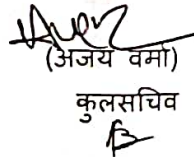 (अजय वर्मा)
कुलसचिव